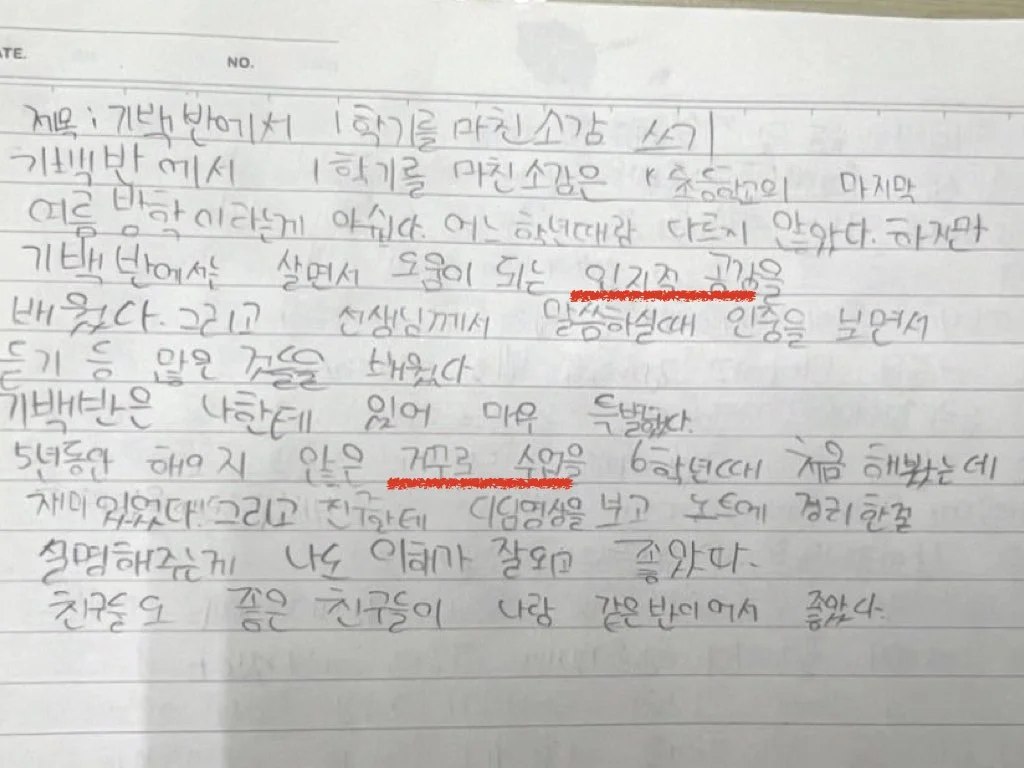 ATE.
NO.
제목: 기백반에서 1학기를 마친소감 쓰기
기백반에서 1학기를 마친소감은 "초등학교의 마지막
여름 방학이라는게 아쉽다. 어느 학년때랑 다르지 않았다. 하지만
기백반에서는 살면서 도움이 되는 인지적 공감을
배웠다. 그리고 선생님께서 말씀하실때 인중을 보면서
듣기 등 많은 것들을 배웠다.
기백반은 나한테 있어 매우 특별했다.
5년동안 해오지 않은 거꾸로 수업을 6학년때 처음 해봤는데
재미있었다. 그리고 친구한테 디딤영상을 보고 노트에 정리한걸
설명해주는게 나도 이해가 잘되고 좋았다.
친구들도 좋은 친구들이 나랑 같은반이어서 좋았다.